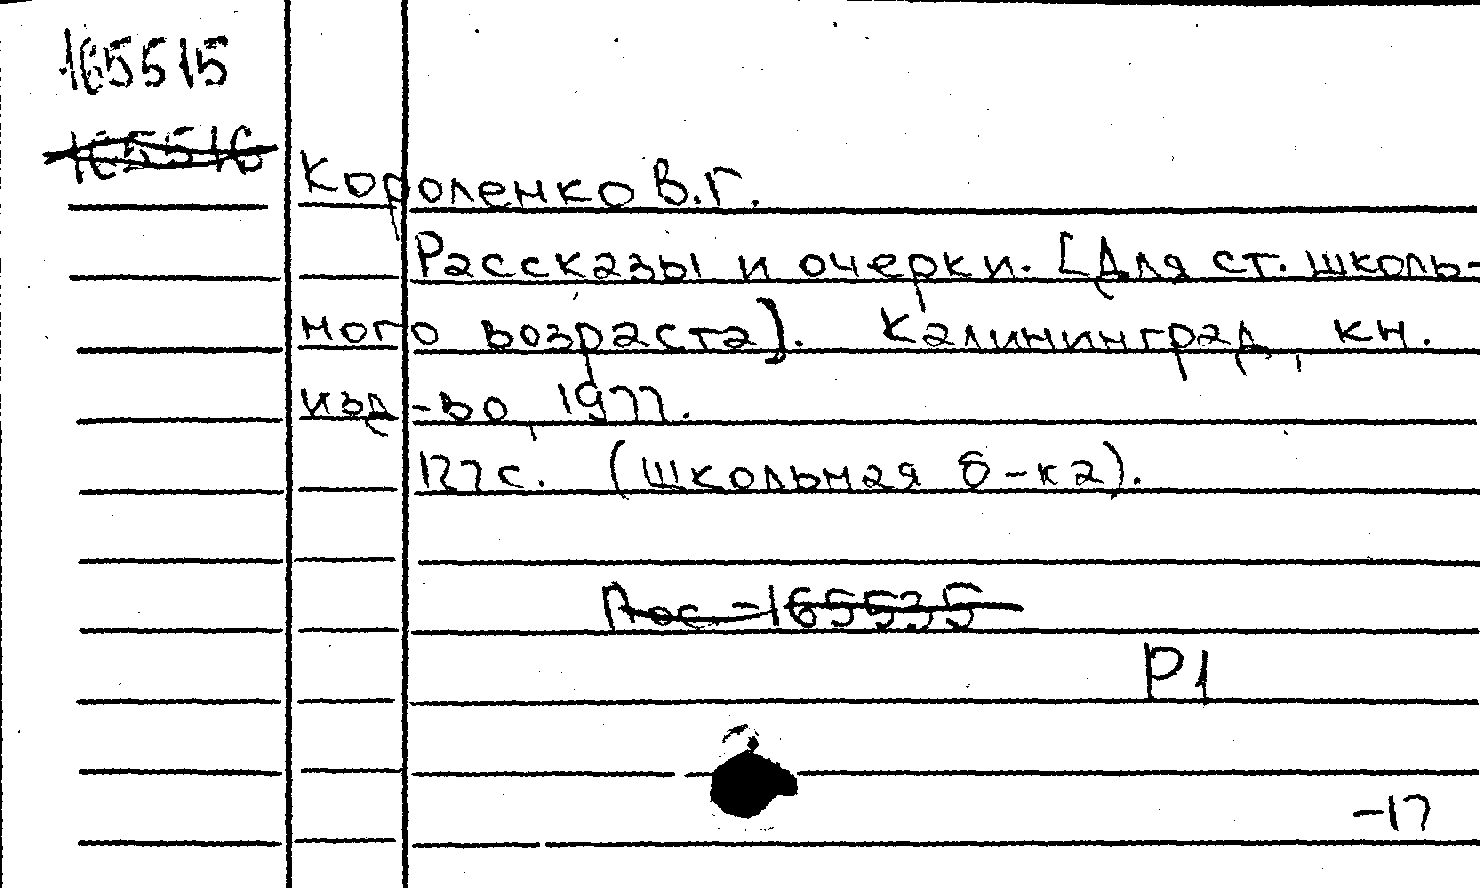 165515
165516
Короленко В.Г.
Рассказы и очерки. [Для ст. школь-
ного возраста]. Калининград, кн.
изд-во, 1977.
127с. (Школьная б-ка).
Пос-165535
Р1
-17